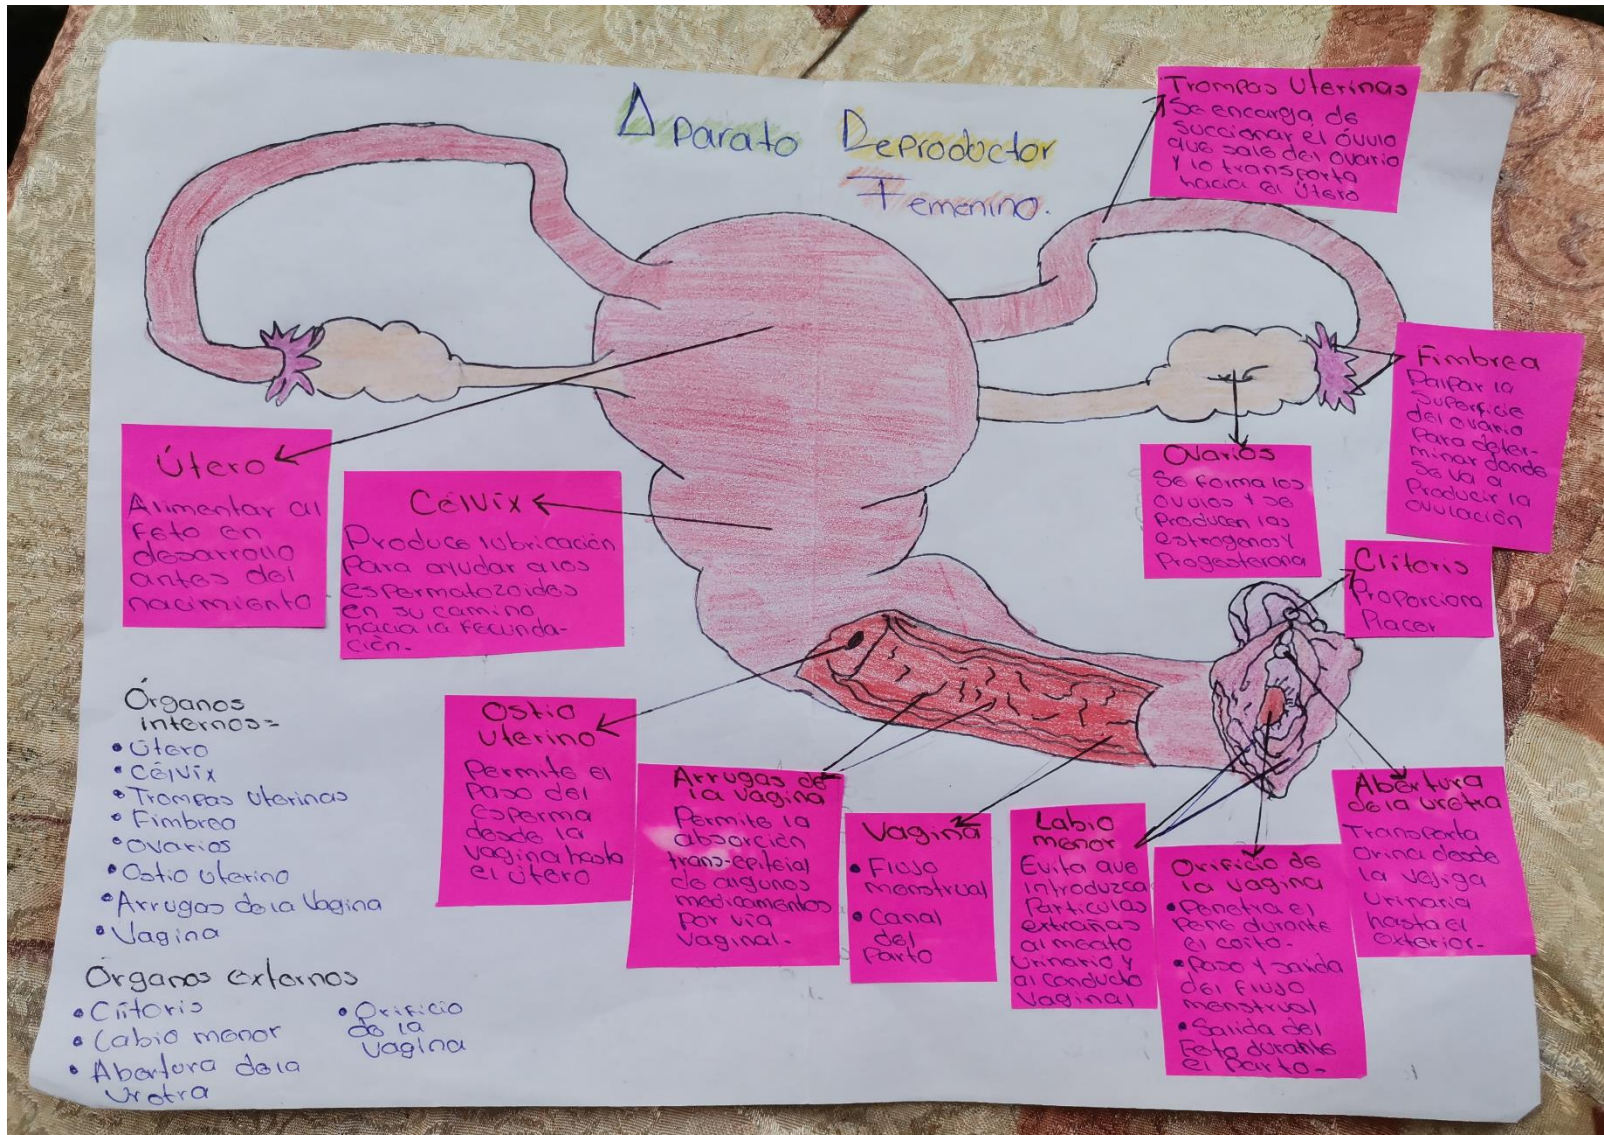 Aparato Reproductor
Femenino.
Trompas Uterinas
Se encarga de
succionar el óvulo
que sale del ovario
y lo transporta
hacia el útero
Fimbrea
Palpar la
superficie
del ovario
para deter-
minar donde
se va a
producir la
ovulación
Ovarios
Se forma los
óvulos y se
producen los
estrógenos y
Progesterona
Clítoris
Proporciona
Placer
Útero
Alimentar al
feto en
desarrollo
antes del
nacimiento
Célvix
Produce lubricación
Para ayudar a los
espermatozoides
en su camino
hacia la fecunda-
ción.
Ostio
uterino
Permite el
paso del
esperma
desde la
vagina hasta
el útero
Arrugas de
la vagina
Permite la
absorción
trans-epitelial
de algunos
medicamentos
por vía
vaginal.
Vagina
• Flujo
menstrual
• Canal
del
Parto
Labio
menor
Evita que
introduzca
partículas
extrañas
al meato
urinario y
al conducto
vaginal
Orificio de
la vagina
• Penetra el
pene durante
el coito.
• Paso y salida
del flujo
menstrual
• Salida del
Feto durante
el parto.
Abertura
de la uretra
Transporta
orina desde
la vejiga
urinaria
hasta el
exterior.
Órganos
internos=
• Útero
• Célvix
• Trompas uterinas
• Fimbrea
• Ovarios
• Ostio uterino
• Arrugas de la vagina
• Vagina
Órganos externos
• Clítoris
• Labio menor
• Abertura de la
Uretra
• Orificio
de la
vagina